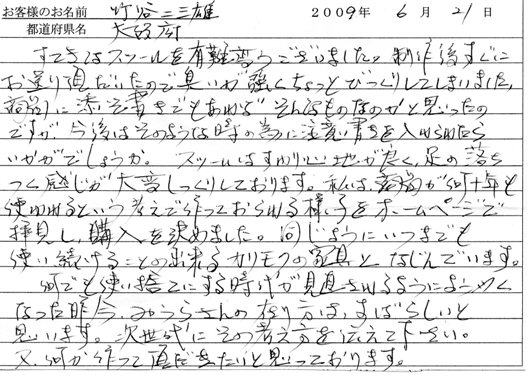 お客様のお名前 竹谷二三雄 2009年 6月 21日
都道府県名 大阪府
すてきなスツールを有難うございました。制作後すぐに
お送り頂だいたので臭いが強くちょっとびっくりしてしまいました。
に添え書きでもあれば そんなものなのかと思ったの
ですが、今後はそのような時の為に注意書きを入れられたら
いかがでしょうか。 スツールはすわり心地が良く、足の落ち
つく感じが大変しっくりしております。私は、 が何十年も
使われるという考えで作っておられる様子をホームページで
拝見し 購入を決めました。同じようにいつまでも
使い続けることの出来るカリモクの家具と なじんでいます。
何でも使い捨てにする時代が見直されるようにようやく
なった昨今、みうらさんの在り方は、すばらしいと
思います。次世代にその考え方を伝えて下さい。
又、何か作って頂だきたいと思っております。